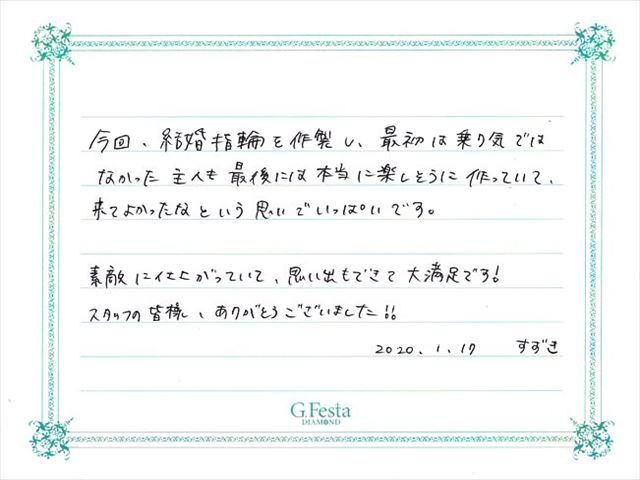 今回、結婚指輪を作製し、最初は乗り気では
なかった主人も最後には本当に楽しそうに作っていて、
来てよかったなという思いでいっぱいです。
素敵に仕上がっていて、思い出もできて大満足です!
スタッフの皆様、ありがとうございました!!
2020.1.17 すずき
G.Festa
DIAMOND